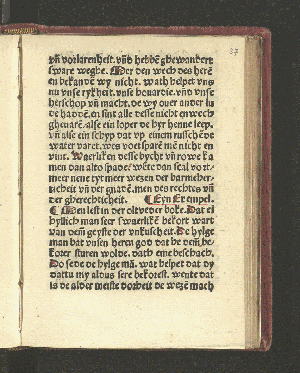 37
vñ vorlarenheit. vnd hebbē gbewandert
sware weghe. Mer den wech des herē
en bekandē wy nicht. wath helpet vns
nu vnse rykheit. vnse houardie. vnd vnse
herschop vñ macht. de wy ouer ander lu
de hadde, en sint alle desse nicht en wech
ghevarē. alse ein loper de hyr henne leep.
vñ alse ein schyp dat vp einem
water varet. wes voet sparē mē nicht en
vint. Waerliken desse bycht vñ rowe ka
men dan alto spade. wēte dan seal vor
meer nene tyt meer wezen der barmeher
ticheit vñ der gnadē. men des rechtes vñ
der gherechticheit. ¶ Eyn Exempel.
¶ Men lest in der oltveder boke. Dat ei
hyllich man seer swaerlike bekort wart
van dem geyste der vnkuscheit. De hylge
man bat vnsen heren god dat he dem be
korer sturen wolde. dath ene beschach.
Do sede de hylge mā. wat helpet dat dy
dattu my aldus sere bekorest. wente dat
is de alder meiste dorheit de wezē mach